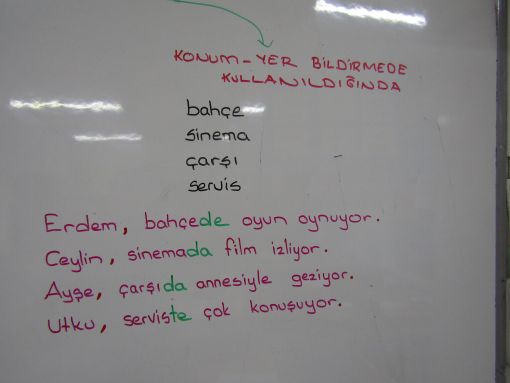 KONUM-YER BİLDİRMEDE
KULLANILDIĞINDA
bahçe
sinema
çarşı
servis
Erdem, bahçede oyun oynuyor.
Ceylin, sinemada film izliyor.
Ayşe, çarşıda annesiyle geziyor.
Utku, serviste çok konuşuyor.